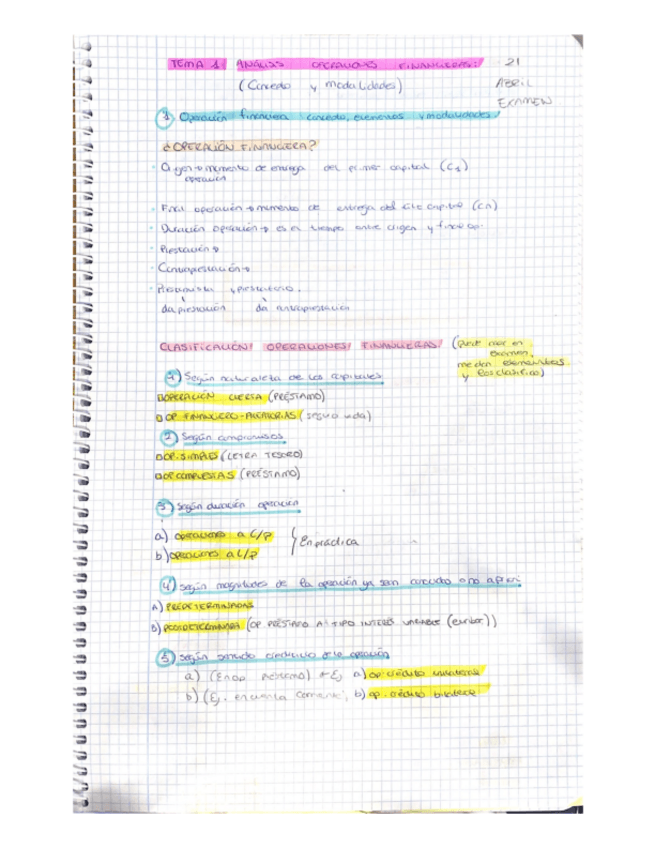 TEMA 1: ANÁLISIS OPERACIONES FINANCIERAS: 21
(Concepto y modalidades) ABRIL
EXAMEN
1) Operación financiera concepto, elementos y modalidades.
¿OPERACIÓN FINANCIERA?
· Origen → momento de entrega del primer capital (C1)
operación
· Final operación → momento de entrega del capital (Cn)
· Duración operación → es el tiempo entre origen y final op.
· Prestación →
· Contraprestación →
· Prestamista y prestatario.
da prestación da contraprestación
CLASIFICACIÓN OPERACIONES FINANCIERAS. (puede caer en
examen,
me dan
y los clasifico)
1) Según naturaleza de los capitales
OPERACIÓN CIERTA (PRÉSTAMO)
OP FINANCIERO-ALEATORIAS (seguro vida)
2) Según compromisos
OP. SIMPLES (LETRA TESORO)
OP COMPUESTAS (PRÉSTAMO)
3) Según duración operación
a) operaciones a C/P
} En práctica
b) operaciones a L/P
4) Según magnitudes de la operación ya sean conocidas o no a priori
A) PREDETERMINADAS
B) POSDETERMINADA (OP PRÉSTAMO A TIPO INTERÉS VARIABLE (euribor))
5) Según sentido crediticio de la operación
a) (En op préstamo) → Ej a) op. crédito unilateral
b) (Ej. en cuenta corriente; b) op. crédito bilateral